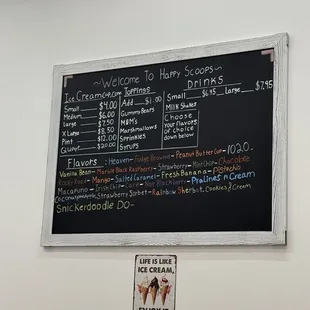 ~Welcome To Happy Scoops~
Ice Cream Cup, Cone
Small $4.00
Medium $6.00
Large $7.50
X Large $8.50
Pint $12.00
Quart $20.00
Toppings
Add $1.00
Gummy Bears
M&M's
Marshmallows
Sprinkles
Syrups
Drinks
Small $6.95 Large $7.95
Milk Shakes
Choose
your flavors
of choice
down below
Flavors : Heaven - Fudge Brownie - Peanut Butter Cup -
Vanilla Bean - Marble Black Raspberry - Strawberry - Mint Chip - Chocolate
Rocky Road - Mango - Salted Caramel - Fresh Banana - Pistachio
Macapuno - Chip - Pralines n Cream
Coconut Pineapple - Strawberry Sorbet - Rainbow Sherbet - Cookies & Cream
Snickerdoodle Do -
LIFE IS LIKE
ICE CREAM,
ENJOY IT